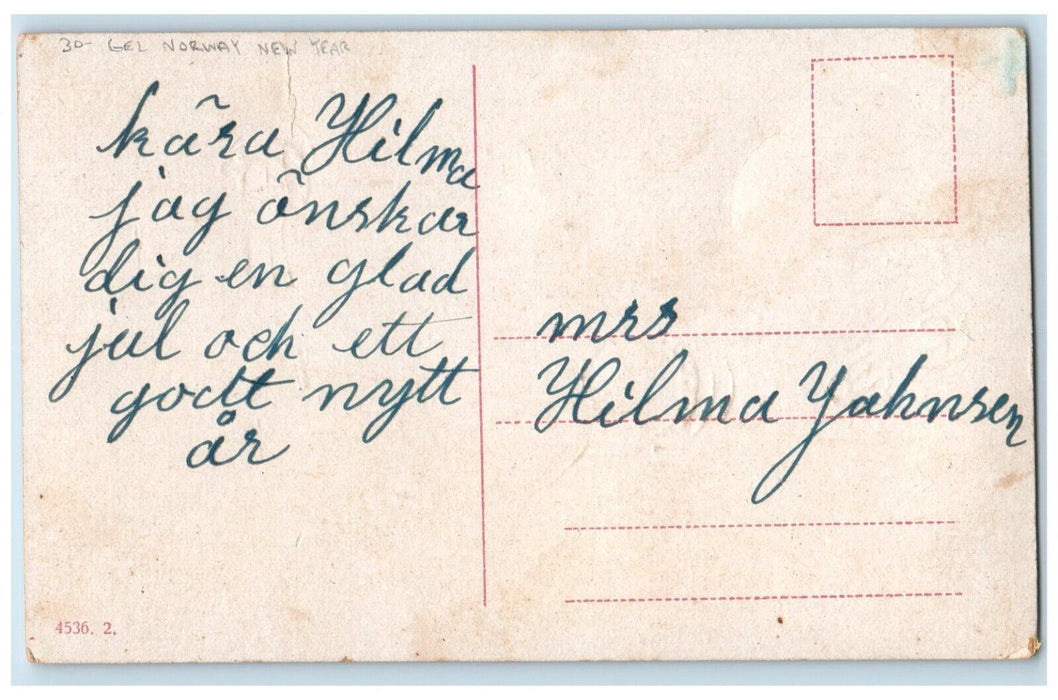 30- GEL NORWAY NEW YEAR
kära Hilma
jag önskar
dig en glad
jul och ett
godt nytt
år
mrs
Hilma Yahnsen
4536. 2.